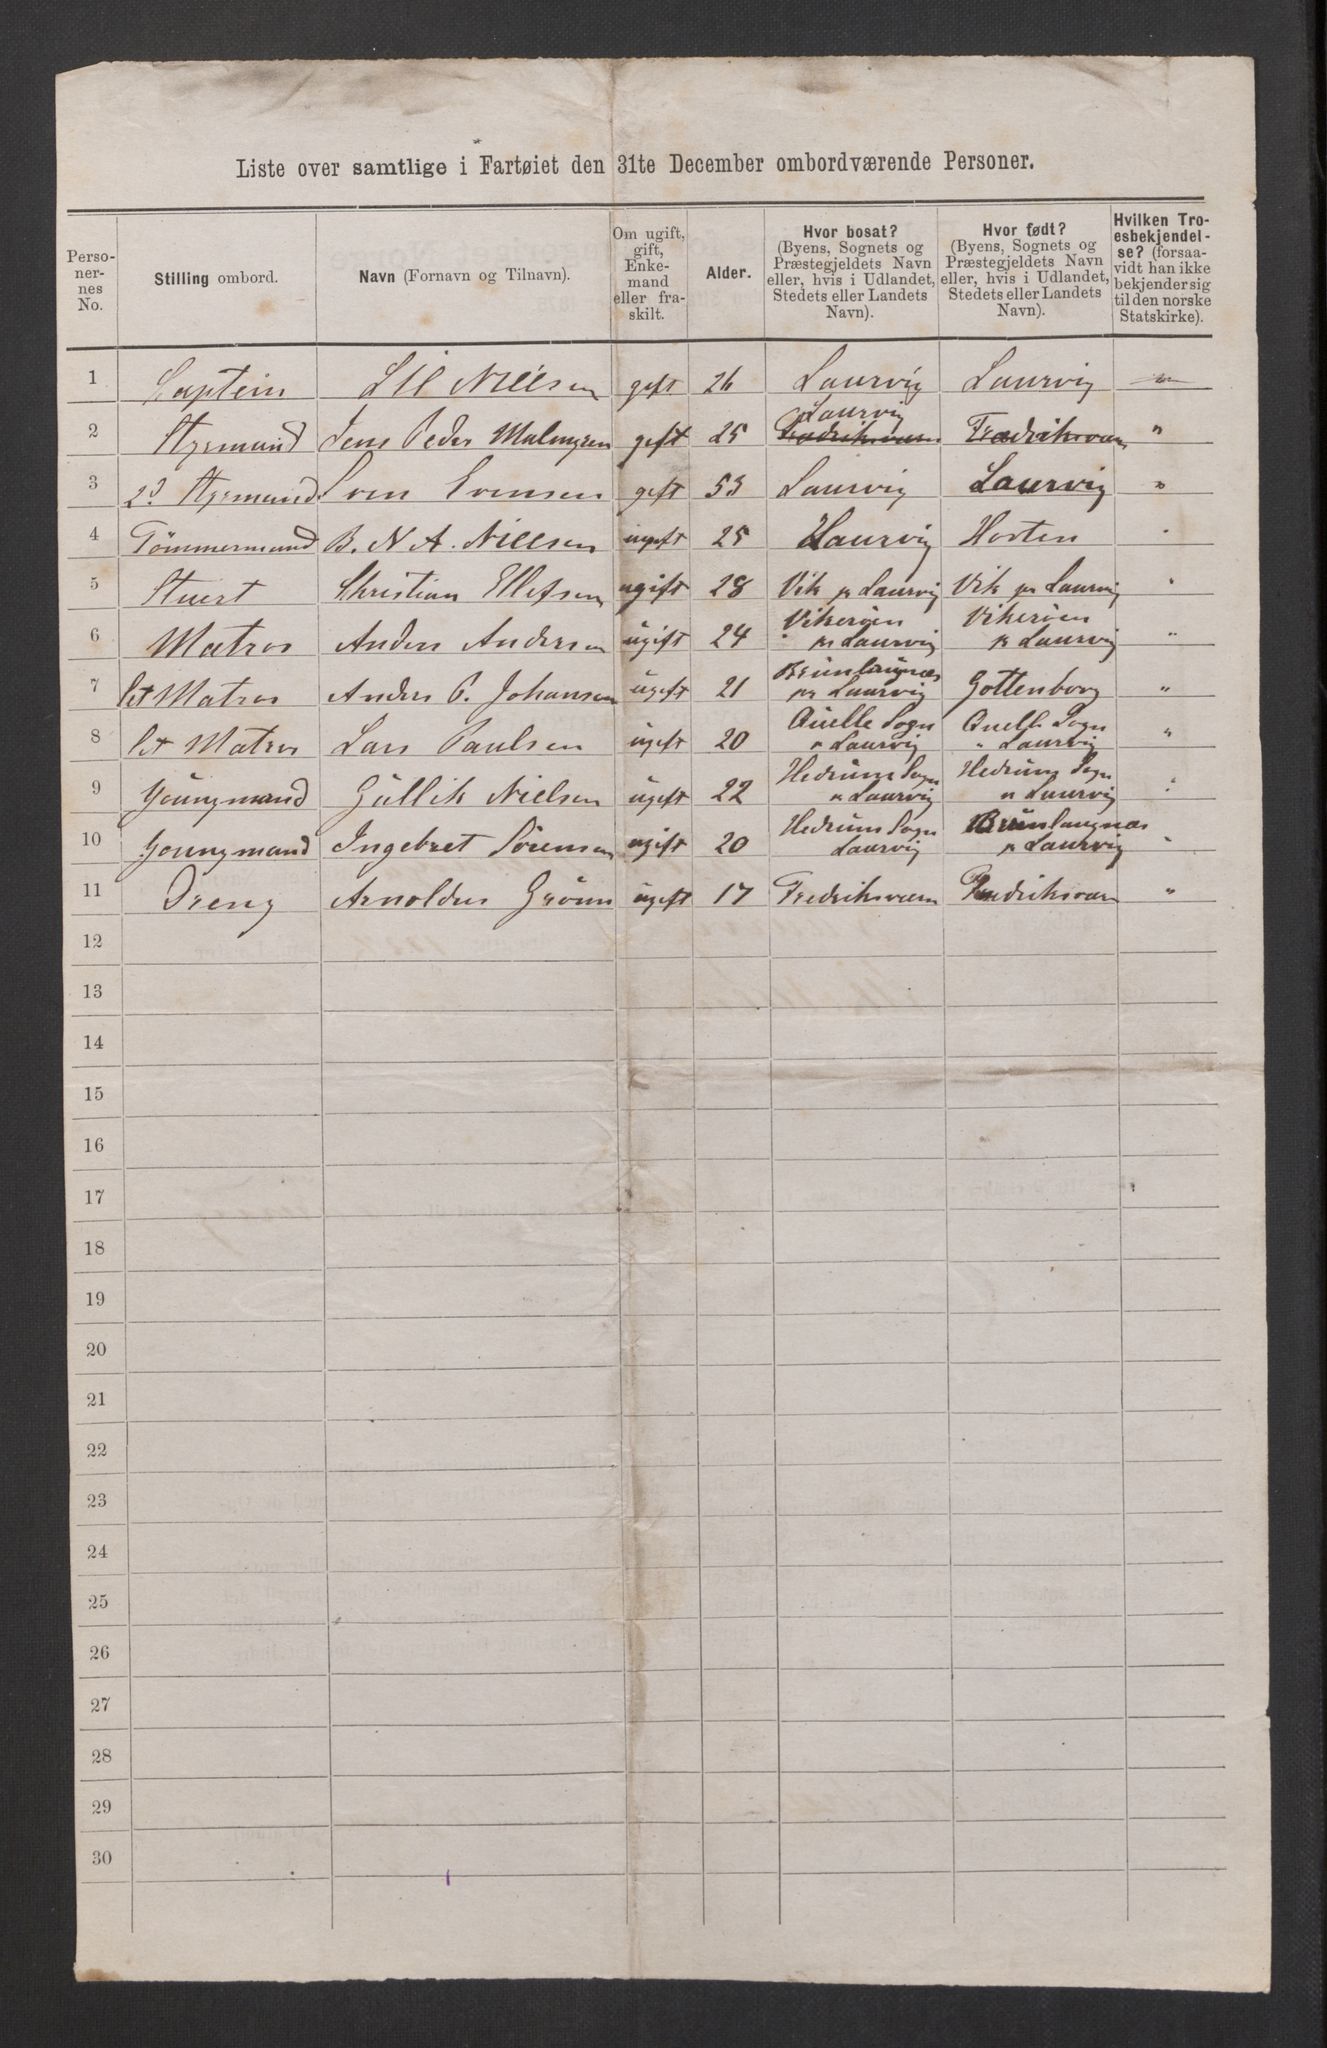 Liste over samtlige i Fartøiet den 31te December ombordværende Personer.
Personernes No. | Stilling ombord. | Navn (Fornavn og Tilnavn). | Om ugift, gift, Enkemand eller fraskilt. | Alder. | Hvor bosat? (Byens, Sognets og Præstegjeldets Navn eller, hvis i Udlandet, Stedets eller Landets Navn). | Hvor født? (Byens, Sognets og Præstegjeldets Navn eller, hvis i Udlandet, Stedets eller Landets Navn). | Hvilken Troesbekjendelse? (forsaavidt han ikke bekjender sig til den norske Statskirke).
1 Captein Nielsen gift 26 Laurvig Laurvig
2 Styrmand Jens Peder Malmgren gift 25 Laurvig Fredriksværn Fredriksværn "
3 2d Styrmand Sven Evensen gift 53 Laurvig Laurvig "
4 Tömmermand B. N. A. Nielsen ugift 25 Laurvig Horten "
5 Stuert Christian Ellefsen ugift 28 Vik pr Laurvig Vik pr Laurvig "
6 Matros Anders Andersen ugift 24 Vikeröen pr Laurvig Vikeröen pr Laurvig "
7 Let Matros Anders P. Johansen ugift 21 Brunlaugnæs pr Laurvig Gottenborg "
8 Let Matros Lars Paulsen ugift 20 Quelle Sogn " Laurvig Quelle Sogn " Laurvig "
9 Youngmand Gullik Nielsen ugift 22 Hedrum Sogn " Laurvig Hedrum Sogn " Laurvig "
10 Youngmand Ingebret Sörensen ugift 20 Hedrum Sogn Laurvig Brunlaugnæs pr Laurvig "
11 Dreng Arnoldus Grönn ugift 17 Fredriksværn Fredriksværn "
12
13
14
15
16
17
18
19
20
21
22
23
24
25
26
27
28
29
30